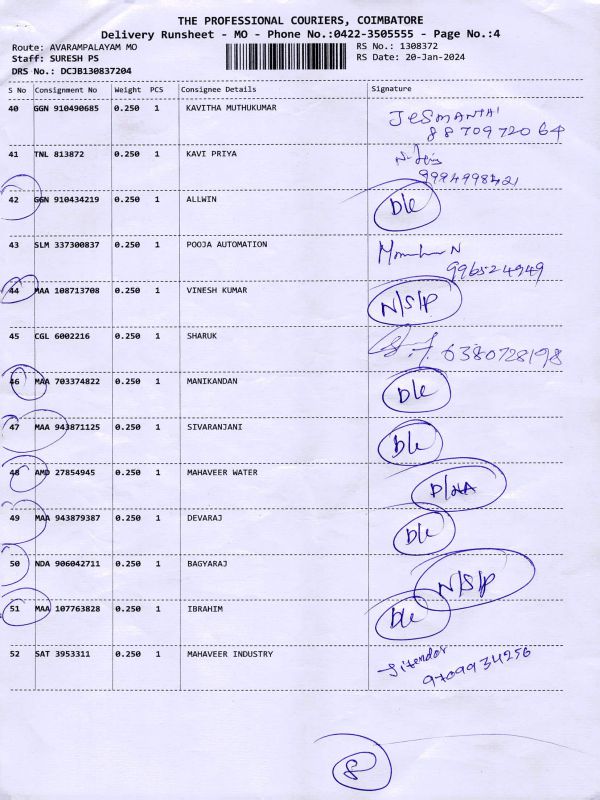 THE PROFESSIONAL COURIERS, COIMBATORE
Delivery Runsheet - MO - Phone No.:0422-3505555 - Page No.:4
Route: AVARAMPALAYAM MO RS No.: 1308372
Staff: SURESH PS RS Date: 20-Jan-2024
DRS No.: DCJB130837204
S No Consignment No Weight PCS Consignee Details Signature
40 GGN 910490685 0.250 1 KAVITHA MUTHUKUMAR
8870972064
41 TNL 813872 0.250 1 KAVI PRIYA
9994998421
42 GGN 910434219 0.250 1 ALLWIN D/c
43 SLM 337300837 0.250 1 POOJA AUTOMATION
9965524949
44 MAA 108713708 0.250 1 VINESH KUMAR N/S/P
45 CGL 6002216 0.250 1 SHARUK 6380728198
46 MAA 703374822 0.250 1 MANIKANDAN D/c
47 MAA 943871125 0.250 1 SIVARANJANI D/c
48 AMD 27854945 0.250 1 MAHAVEER WATER
49 MAA 943879387 0.250 1 DEVARAJ D/c
50 NDA 906042711 0.250 1 BAGYARAJ N/S/P
51 MAA 107763828 0.250 1 IBRAHIM D/c
52 SAT 3953311 0.250 1 MAHAVEER INDUSTRY
9709934256
8